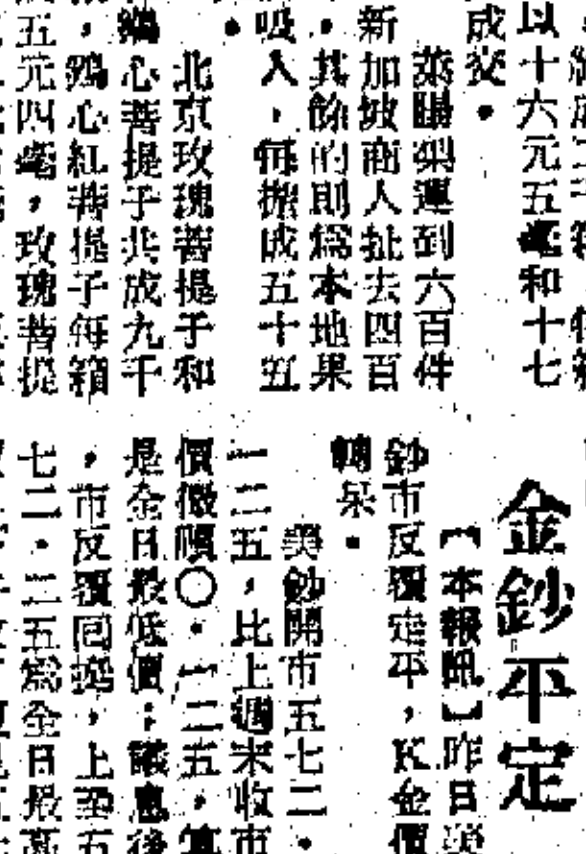 以十六元五毫和十七
成交。
萊陽梨運到六百件
新加坡商人扯去四百
,其餘的則爲本地果
吸入,每擔成五十五
。
北京玫瑰菩提子和
鷄心菩提子共成九千
,鷄心紅菩提子每箱
五元四毫,玫瑰菩提
金鈔平定
【本報訊】昨日美
鈔市反覆走平,K金價
轉呆。
美鈔開市五七二。
一二五,比上週末收市
價微順〇。一二五,算
是全日最低價;議息後
,市反覆回挺,上至五
七二。二五爲全日最高